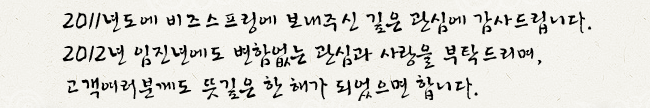 2011년도에 비즈스프링에 보내주신 깊은 관심에 감사드립니다.
2012년 임진년에도 변함없는 관심과 사랑을 부탁드리며,
고객여러분께도 뜻깊은 한 해가 되었으면 합니다.